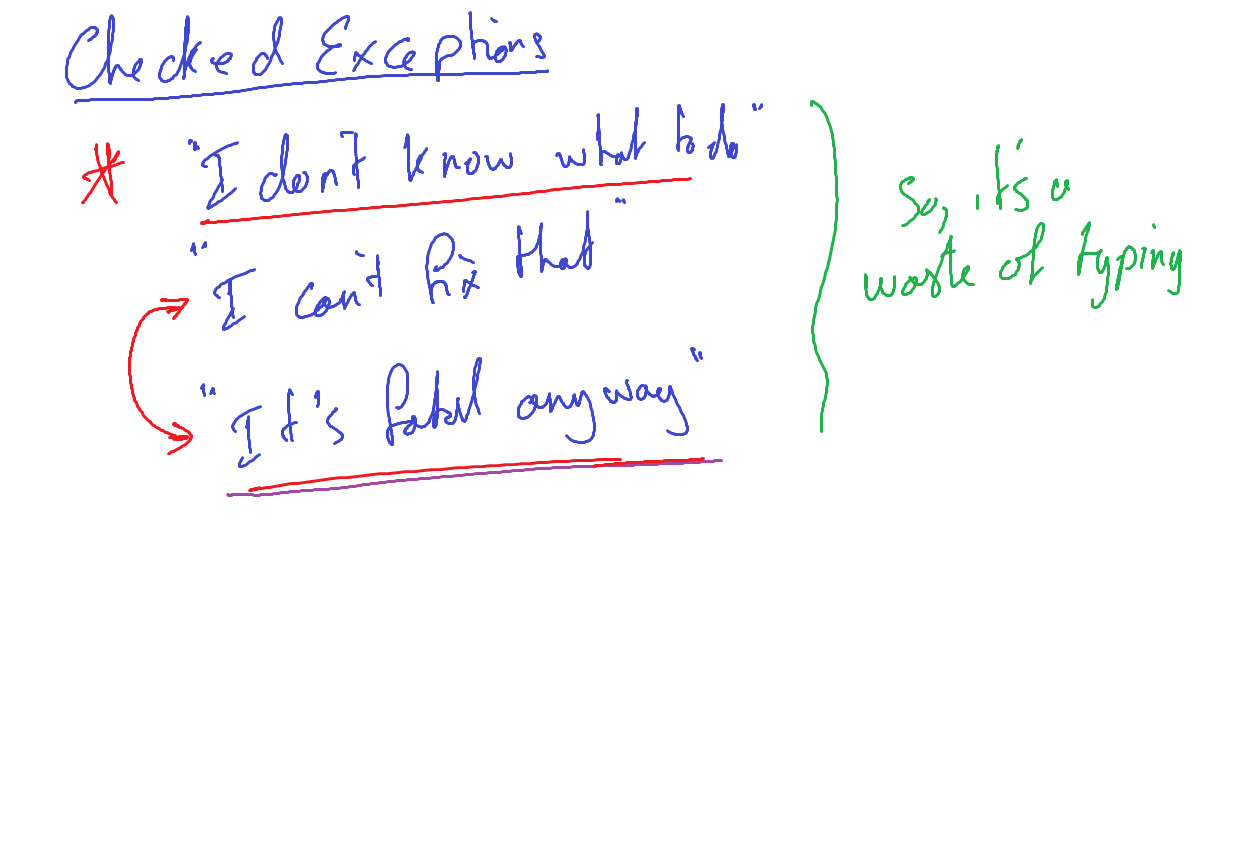 Checked Exceptions
* "I don't know what to do"
"I can't fix that"
"It's fatal anyway"
So, it's a
waste of typing